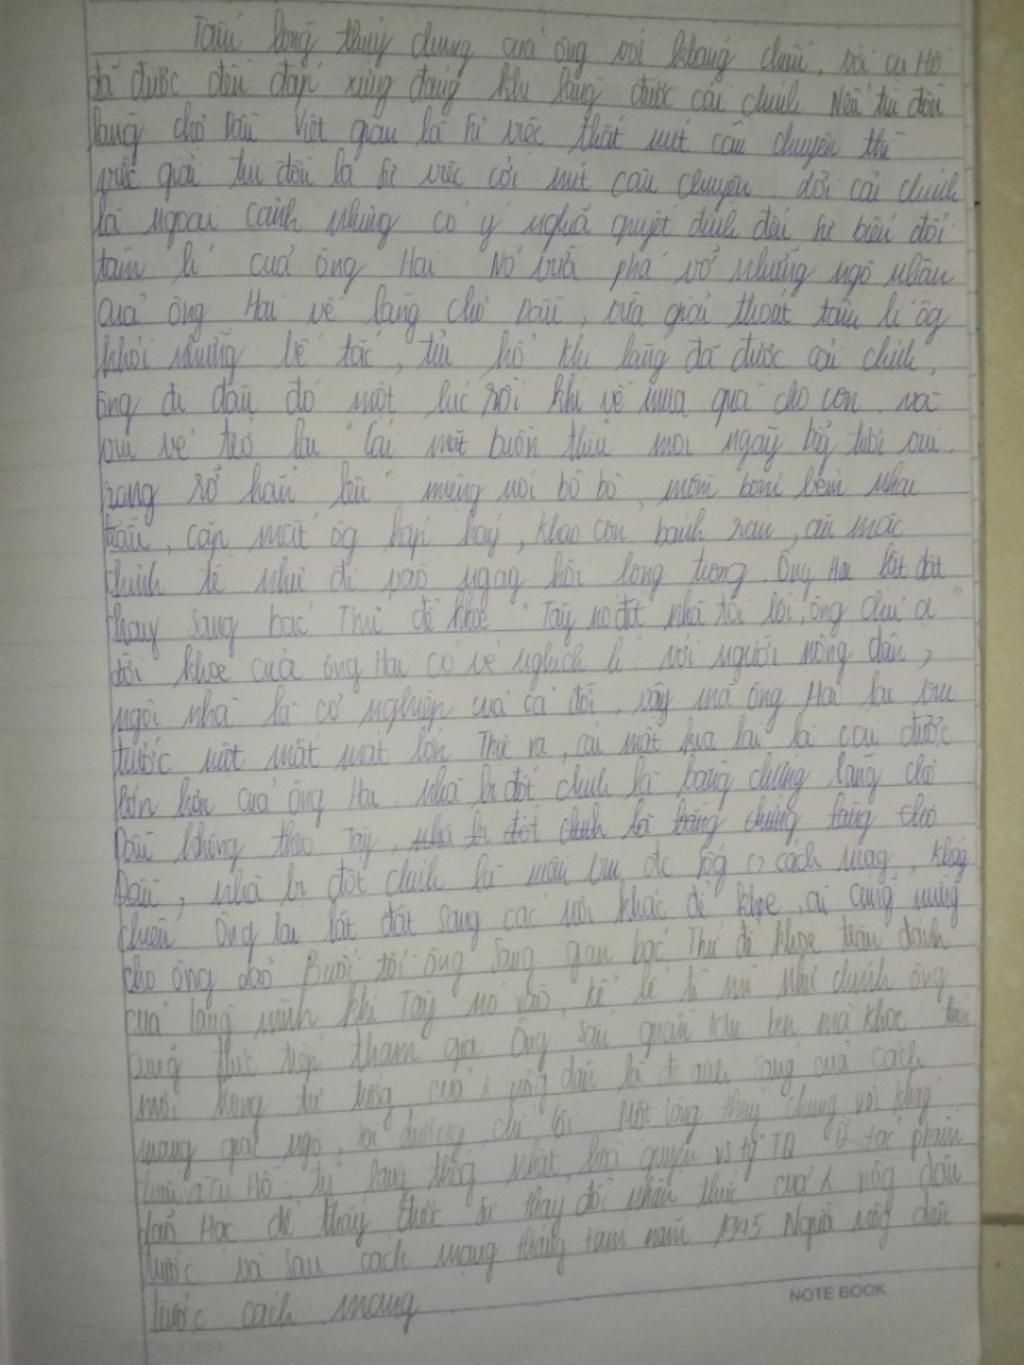 Tấm lòng thủy chung của ông với kháng chiến, với cụ Hồ
đã được đền đáp xứng đáng khi làng được cải chính Nếu tin đồn
làng chợ Dầu Việt gian là sự việc thắt nút câu chuyện thì
việc giải tin đồn là sự việc cởi nút câu chuyện. lời cải chính
là ngoại cảnh nhưng có ý nghĩa quyết định đến sự biến đổi
tâm lí của ông Hai. Nó vừa phá vỡ những ngộ nhận
của ông Hai về làng chợ Dầu, vừa giải thoát tâm lí ôg
khỏi những bế tắc, tủi hổ khi làng đã được cải chính,
ông đi đâu đó một lúc rồi khi về mua quà cho con và
vui vẻ trở lại "Cái mặt buồn thiu mọi ngày bỗng tươi vui
rạng rỡ hẳn lên" miệng nói bô bô, mồm bỏm bẻm nhai
trầu, cặp mắt ôg hấp háy, khao con bánh rán, ăn mặc
chỉnh tề như đi vào ngày hội long trọng. Ông Hai lật đật
chạy sang bác Thứ để khoe "Tây nó đốt nhà tôi rồi, ông chủ ạ"
lời khoe của ông Hai có vẻ nghịch lí với người nông dân,
ngôi nhà là cơ nghiệp của cả đời, vậy mà ông Hai lại vui
trước một mất mát lớn Thì ra, cái mất kia lại là cái được
lớn hơn của ông Hai. nhà bị đốt chính là bằng chứng làng chợ
Dầu không theo Tây, nhà bị đốt chính là bằng chứng làng chợ
Dầu, nhà bị đốt chính là cách mạg, khág
chiến Ông lại lật đật sang các nơi khác để khoe, ai cũng mừng
cho ông lão Buổi tối ông sang gian bác Thứ để khoe trận đánh
của làng mình khi Tây nó vào, kể lể tỉ mỉ như chính ông
cũng trực tiếp tham gia Ông sắn quần lên bẹn mà khoe
mới trong tư tưởng của nông dân là đc ánh sáng của cách
mạng giác ngộ, chỉ lối Một lòng thủy chung với khág
chiến và cụ Hồ. làng thống nhất, hòa quyện vs ty TQ Ở tác phẩm
Lão Hạc để thấy được sự thay đổi nhận thức của nông dân
trước và sau cách mạng tháng tám năm 1945 Người nông dân
trước cách mạng
NOTE BOOK